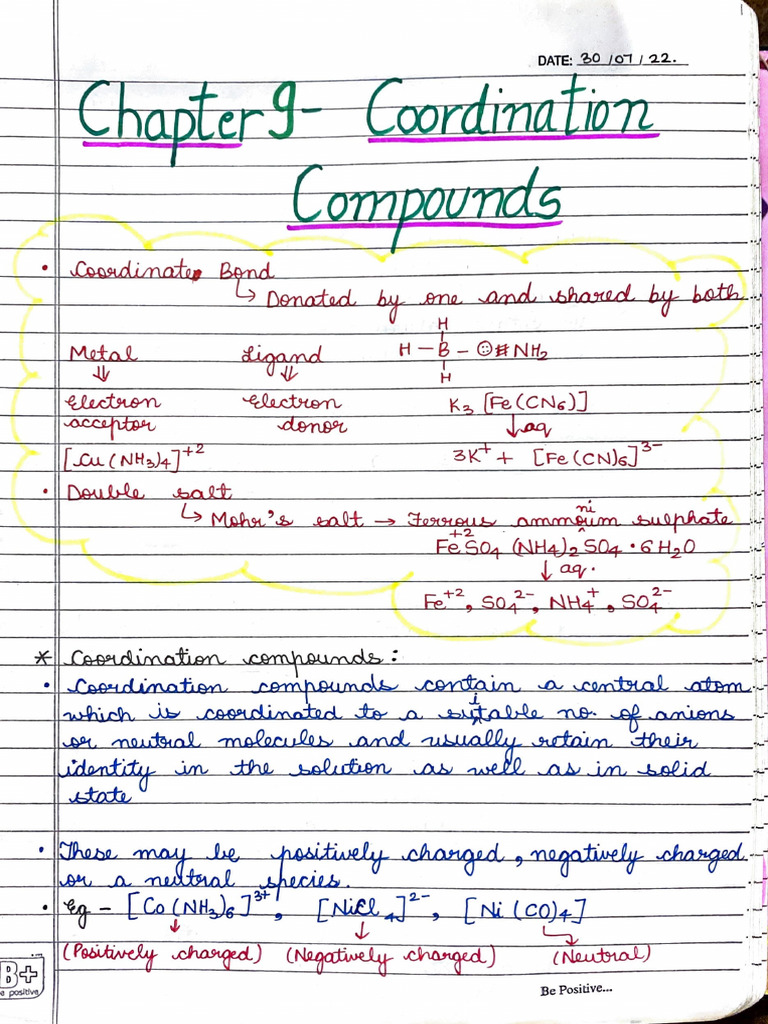 DATE: 30/07/22.
Chapter 9 - Coordination
Compounds
• Coordinate Bond
↳ Donated by one and shared by both
H
Metal Ligand H – B – NH2
H
⇓ ⇓
Electron Electron K3 [Fe(CN6)]
acceptor donor ↓aq
[Cu(NH3)4]+2 3K+ + [Fe(CN)6]3-
• Double salt
↳ Mohr's salt → Ferrous ammonium sulphate
+2
FeSO4 (NH4)2 SO4 • 6H2O
↓ aq.
Fe+2, SO4 2-, NH4+, SO4 2-
* Coordination compounds:
• Coordination compounds contain a central atom
which is coordinated to a suitable no. of anions
or neutral molecules and usually retain their
identity in the solution as well as in solid
state
• These may be positively charged, negatively charged
or a neutral species.
• Eg – [Co(NH3)6]3+, [NiCl4]2-, [Ni(CO)4]
(Positively charged) (Negatively charged) (Neutral)
B+
be positive
Be Positive...